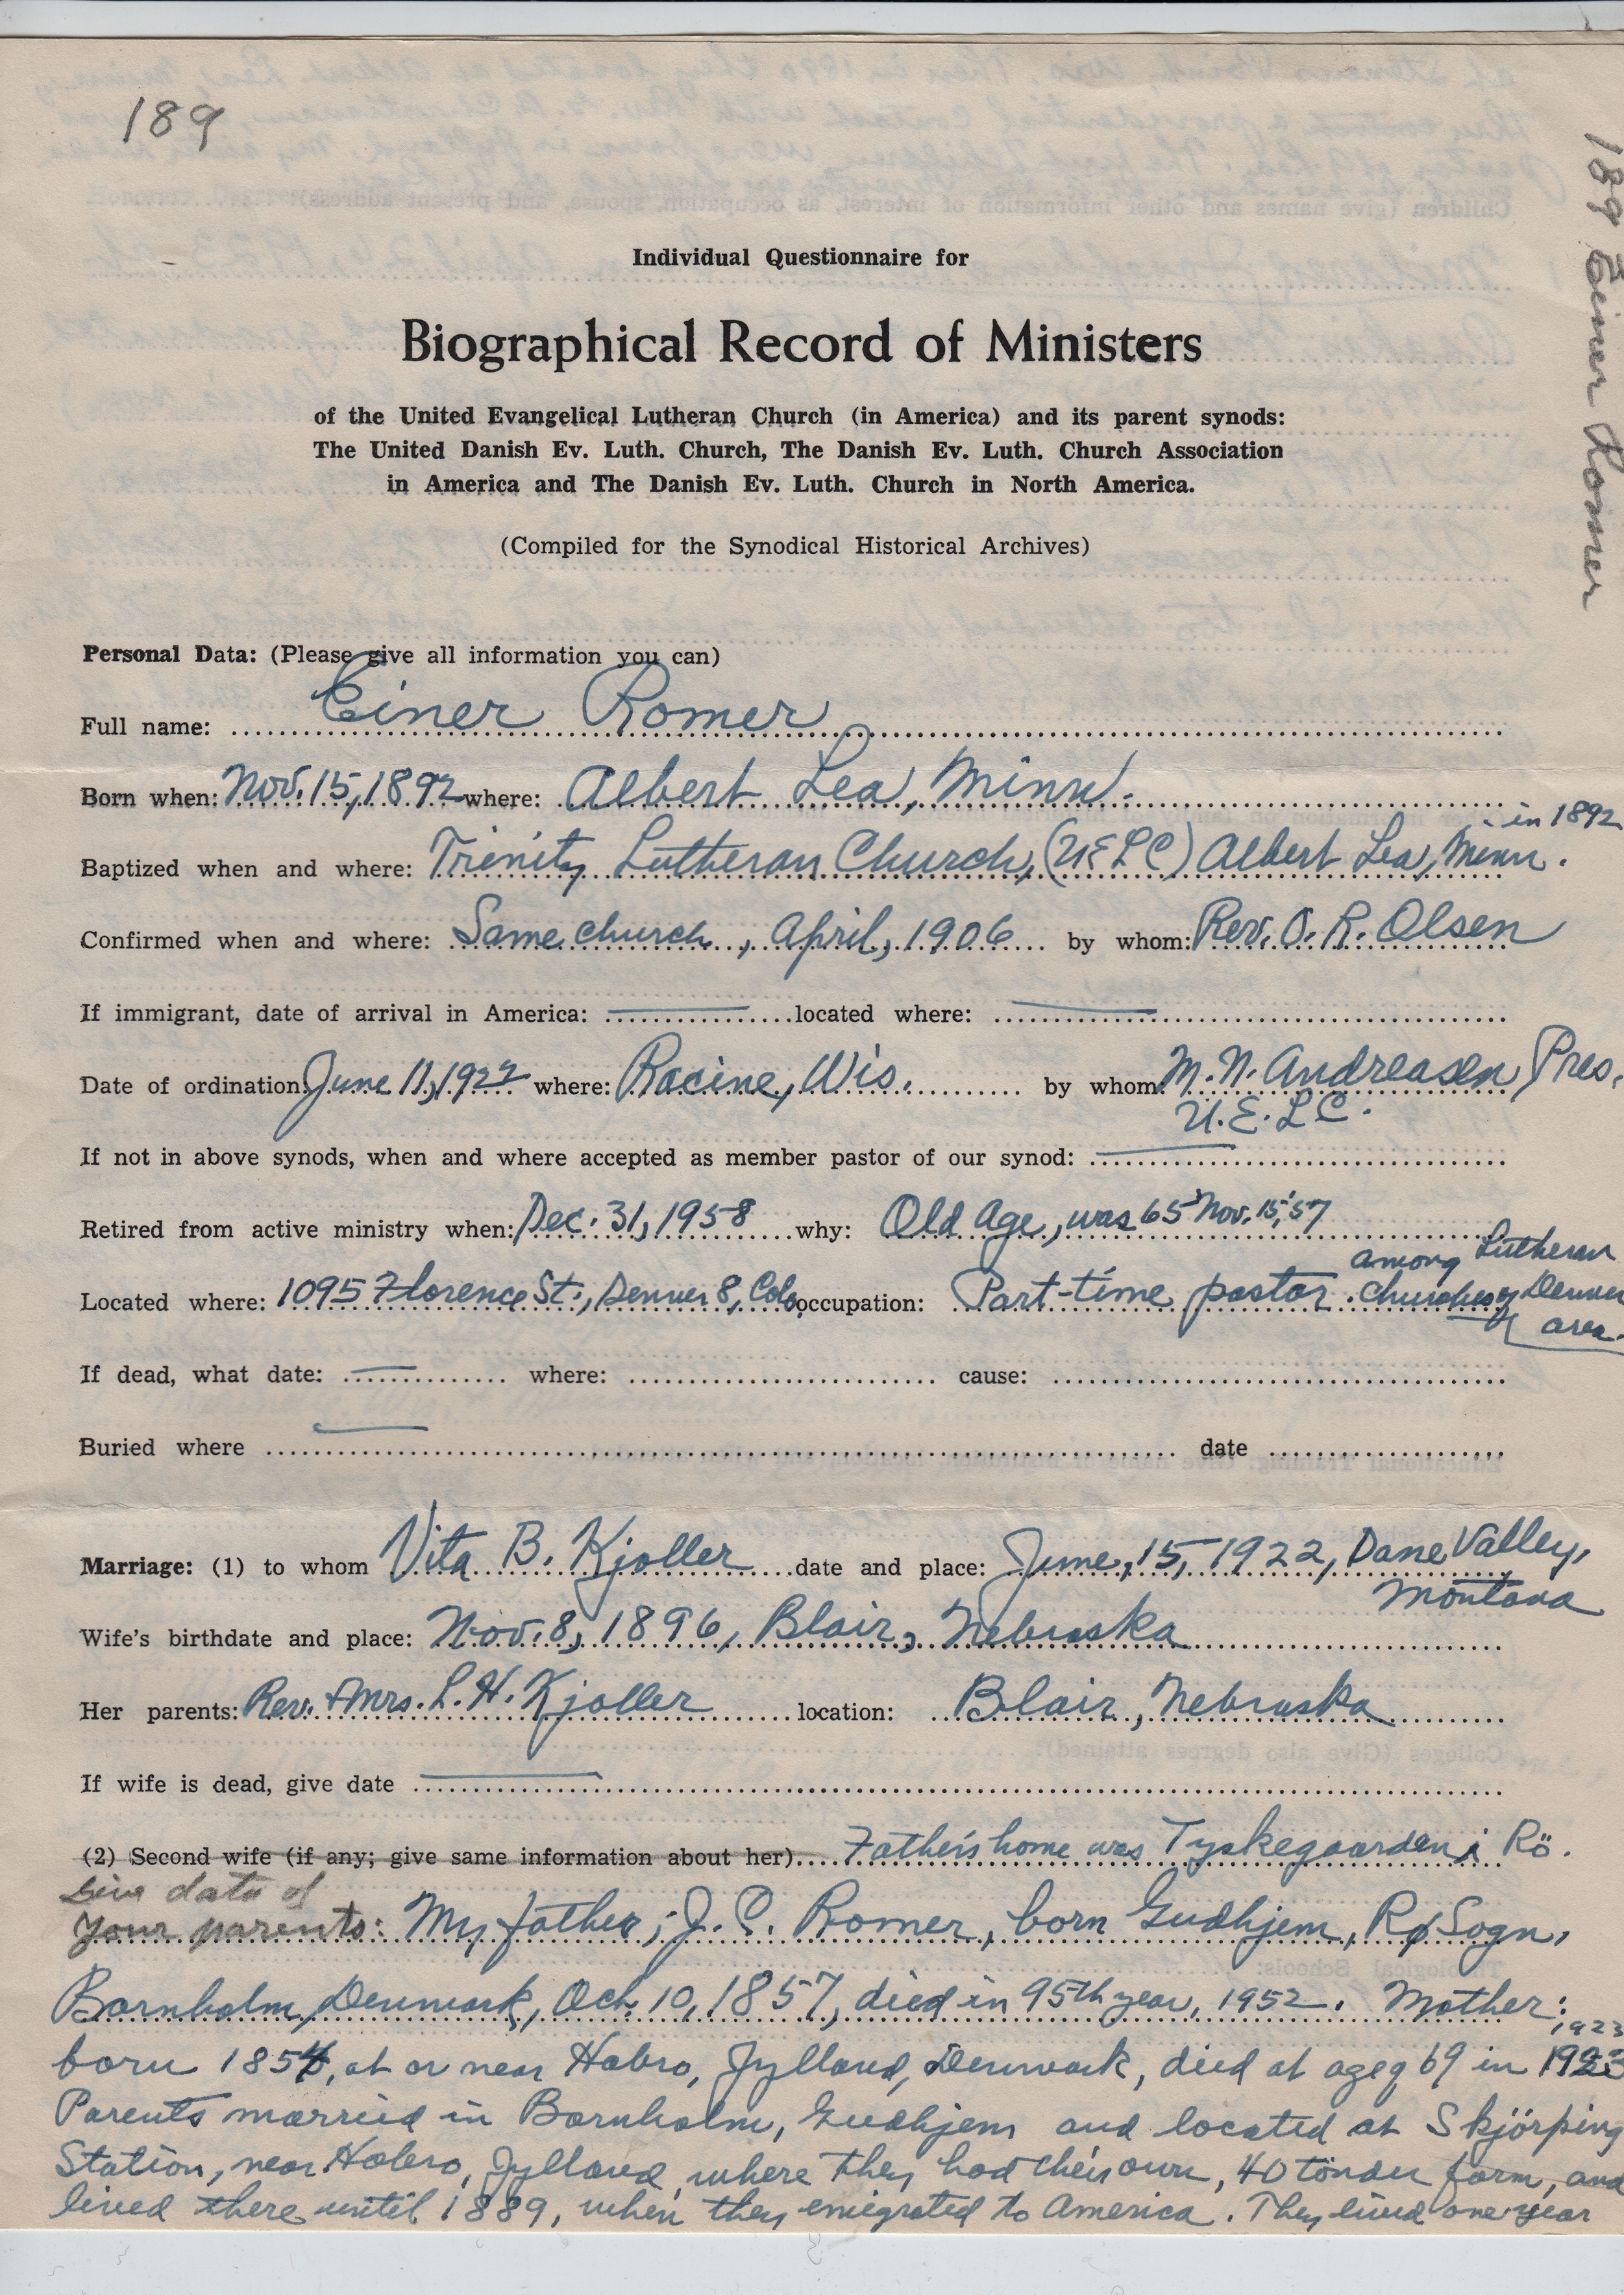 189
189 Einer Romer
Individual Questionnaire for
Biographical Record of Ministers
of the United Evangelical Lutheran Church (in America) and its parent synods:
The United Danish Ev. Luth. Church, The Danish Ev. Luth. Church Association
in America and The Danish Ev. Luth. Church in North America.
(Compiled for the Synodical Historical Archives)
Personal Data: (Please give all information you can)
Full name: Einer Romer
Born when: Nov. 15, 1892 where: Albert Lea, Minn.
Baptized when and where: Trinity Lutheran Church, (UELC) Albert Lea, Minn. in 1892
Confirmed when and where: Same church, April, 1906 by whom: Rev. O. R. Olsen
If immigrant, date of arrival in America: located where:
Date of ordination: June 11, 1922 where: Racine, Wis. by whom: M. N. Andreasen, Pres.
U.E.LC.
If not in above synods, when and where accepted as member pastor of our synod:
Retired from active ministry when: Dec. 31, 1958 why: Old Age, was 65 Nov. 15, '57
Located where: 1095 Florence St., Denver 8, Colo. occupation: Part-time pastor among Lutheran churches of Denver area.
If dead, what date: where: cause:
Buried where date
Marriage: (1) to whom Vita B. Kjoller date and place: June, 15, 1922, Dane Valley,
Montana
Wife's birthdate and place: Nov. 8, 1896, Blair, Nebraska
Her parents: Rev. & Mrs. L. H. Kjoller location: Blair, Nebraska
If wife is dead, give date
(2) Second wife (if any; give same information about her) Father's home was Tyskegaarden i Rö.
Give data of
your parents: My father; J. C. Romer, born Gudhjem, Rø Sogn,
Bornholm, Denmark, Oct. 10, 1857, died in 95th year, 1952. Mother:
born 1854, at or near Hobro, Jylland, Denmark, died at age of 69 in 1923 1923
Parents married in Bornholm, Gudhjem and located at Skjörping
Station, near Hobro, Jylland, where they had their own, 40 tönder farm, and
lived there until 1889, when they emigrated to America. They lived one year